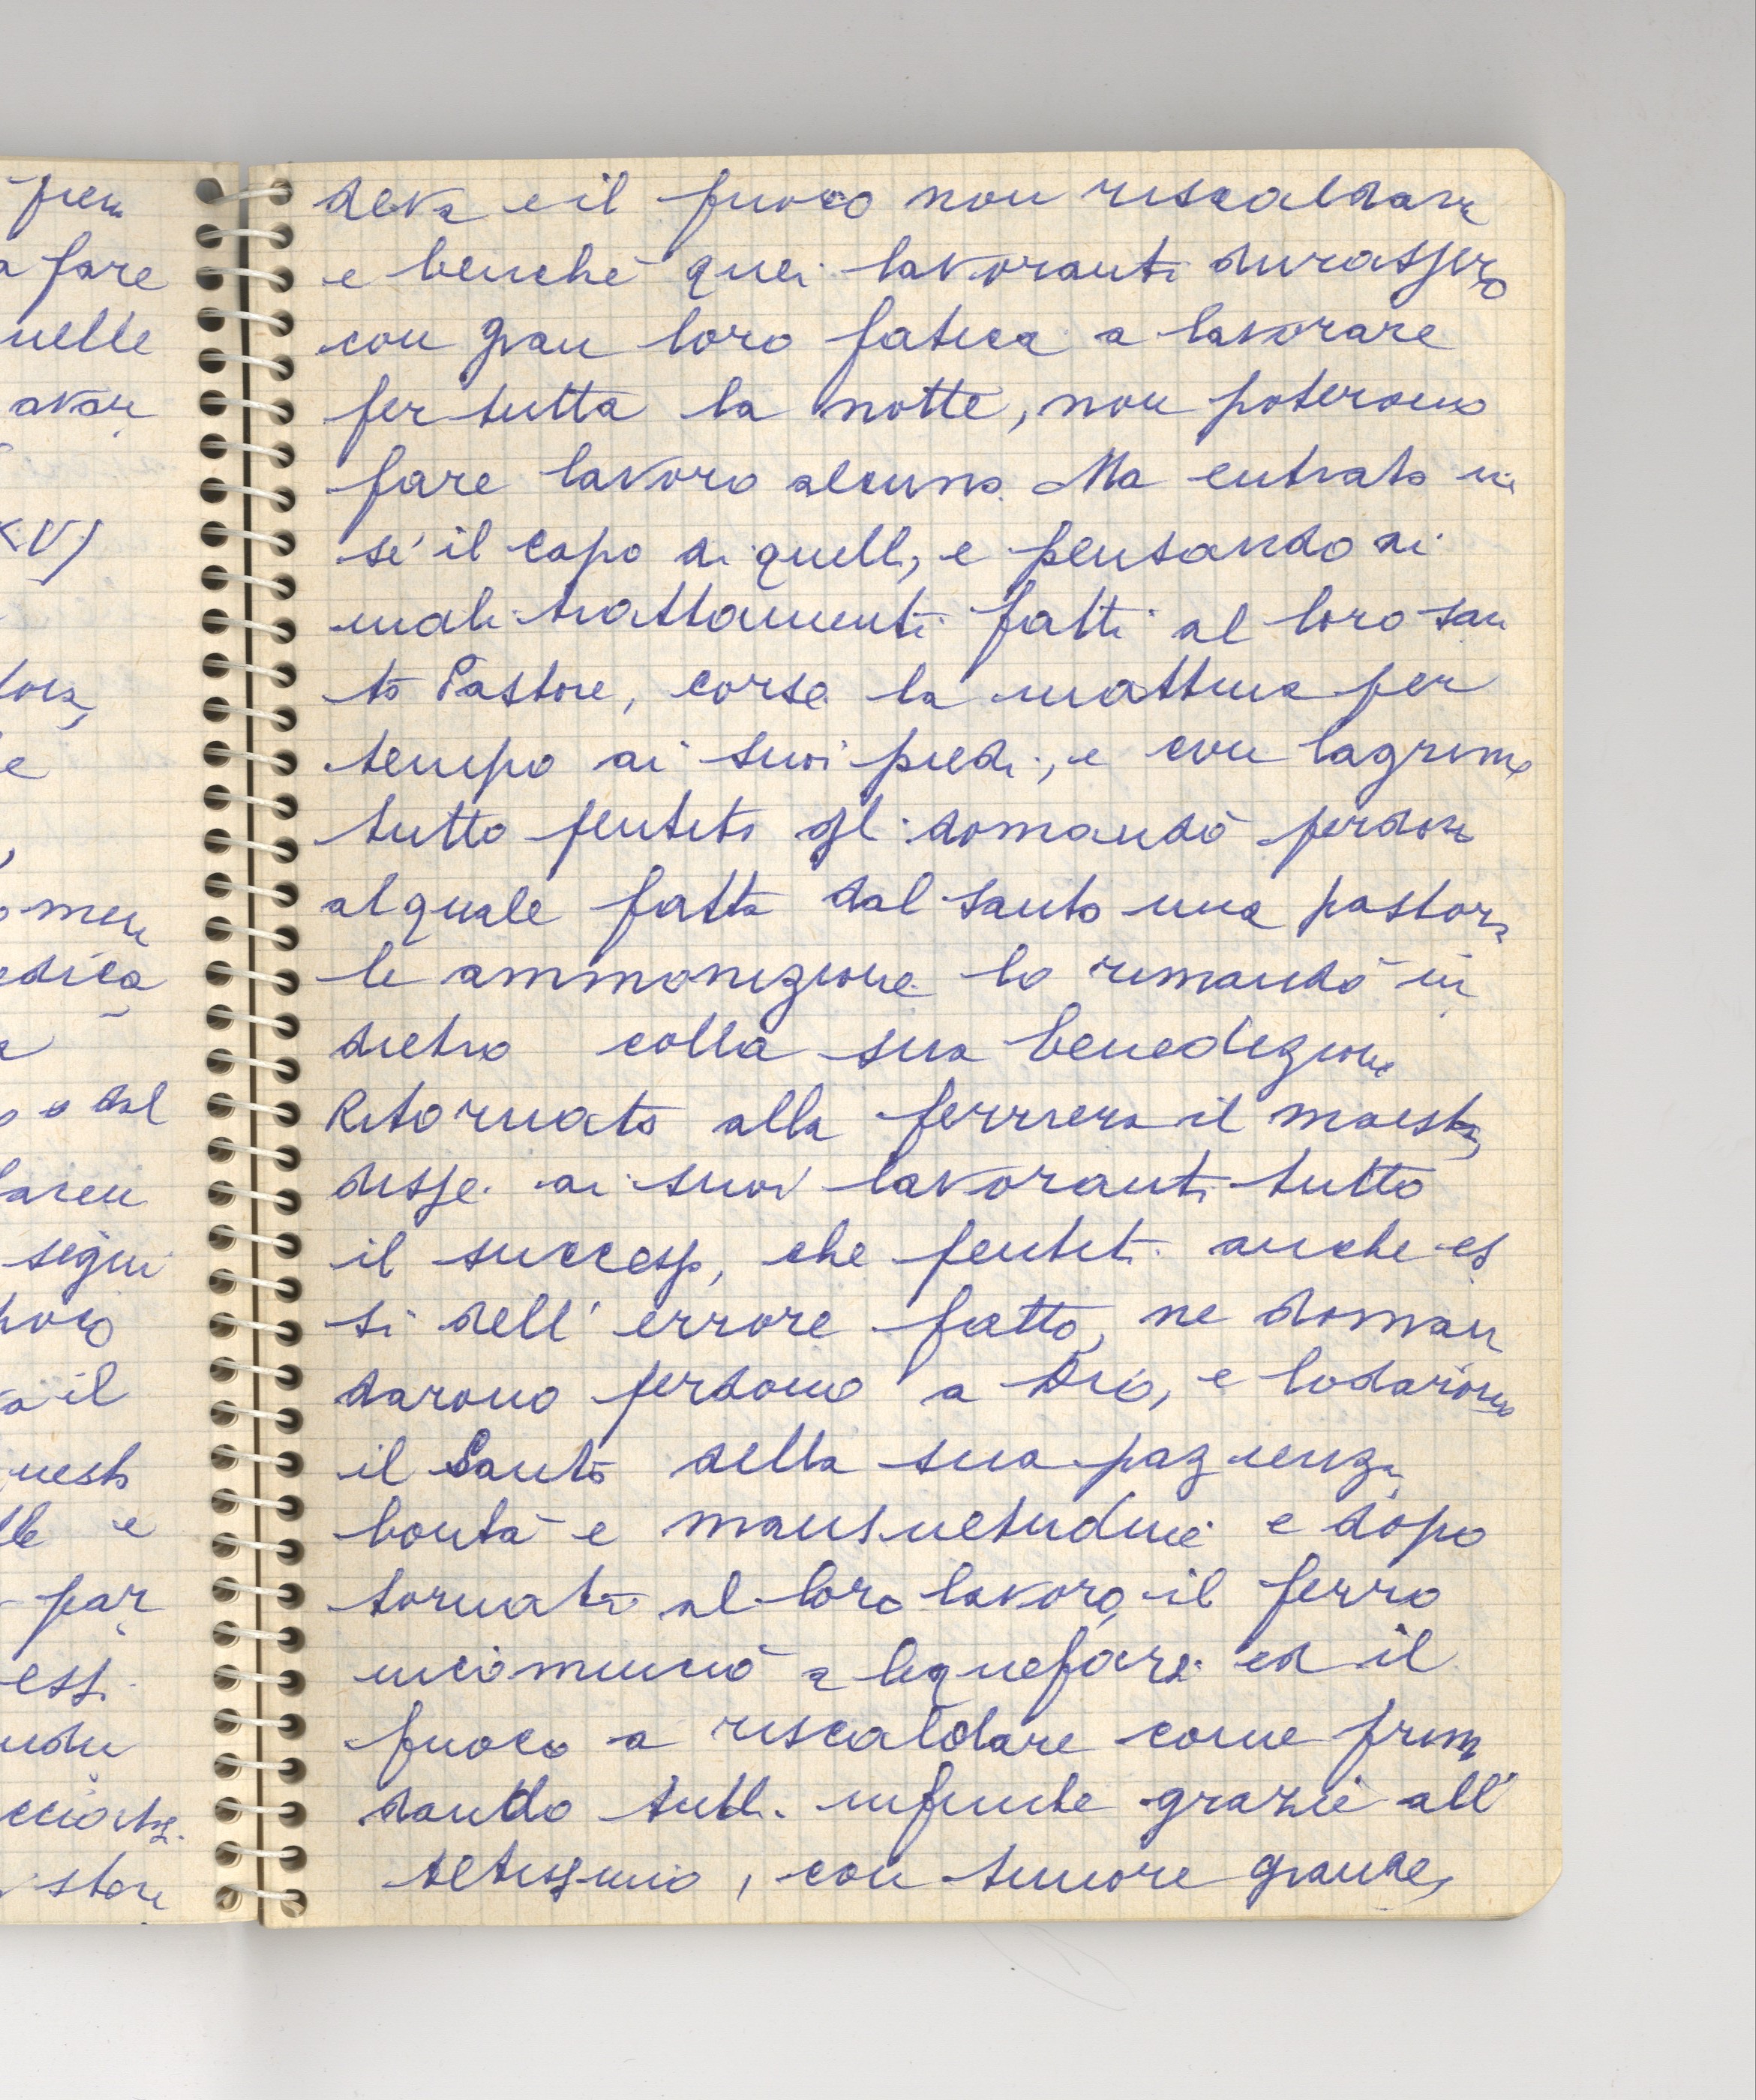 deva e il fuoco non riscaldava
e benché quei lavoranti durassero
con gran loro fatica a lavorare
per tutta la notte, non poterono
fare lavoro alcuno. Ma entrato in
sé il capo di quelli, e pensando ai
mali trattamenti fatti al loro san
to Pastore, corse la mattina per
tempo ai suoi piedi, e con lagrime
tutto pentito gli domandò perdono
al quale fatta dal santo una pastora
le ammonizione lo rimandò in
dietro colla sua benedizione
Ritornato alla ferriera il maestro,
disse ai suoi lavoranti tutto
il successo, che pentiti anche es
si dell'errore fatto, ne doman
darono perdono a Dio, e lodarono
il Santo della sua pazienza
bontà e mansuetudine e dopo
tornati al loro lavoro, il ferro
incominciò a liquefarsi ed il
fuoco a riscaldare come prima
dando tutti infinite grazie all'
altissimo, con timore grande,
pren
a fare
quelle
avan
XV)
e
o men
edica
o o dal
segui
poco
a il
questo
lle e
par
essi